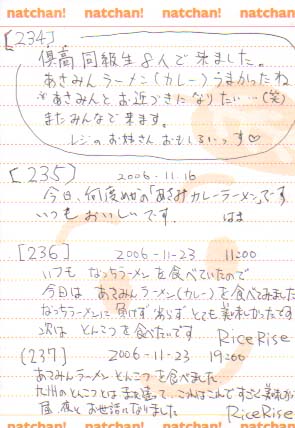 natchan! natchan! natchan! natchan!
[234]
倶高同級生8人で来ました。
あさみんラーメン(カレー)うまかったね
*あさみんとお近づきになりたい…(笑)
またみんなで来ます。
レジのお姉さんおもしろいっす♡
[235] 2006-11.16
今日、何度めかの「あさみカレーラーメン」です
いつもおいしいです.
[236] 2006-11-23 11:00
いつもなっちラーメンを食べていたので
今日はあさみんラーメン(カレー)を食べてみました
なっちラーメンに負けず劣らずとても美味しかったです
次はとんこつを食べたいです RiceRise
(237) 2006-11-23 19:00
あさみんラーメンとんこつを食べました
九州のとんこつとはまた違って、これはこれですごく美味
昼、夜とお世話になりました RiceRise
natchan! natchan! natchan! natchan!